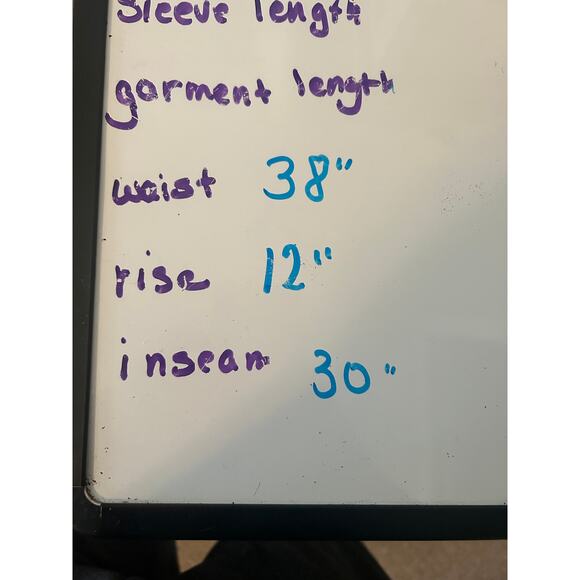 Sleeve length
garment length
waist 38"
rise 12"
inseam 30"